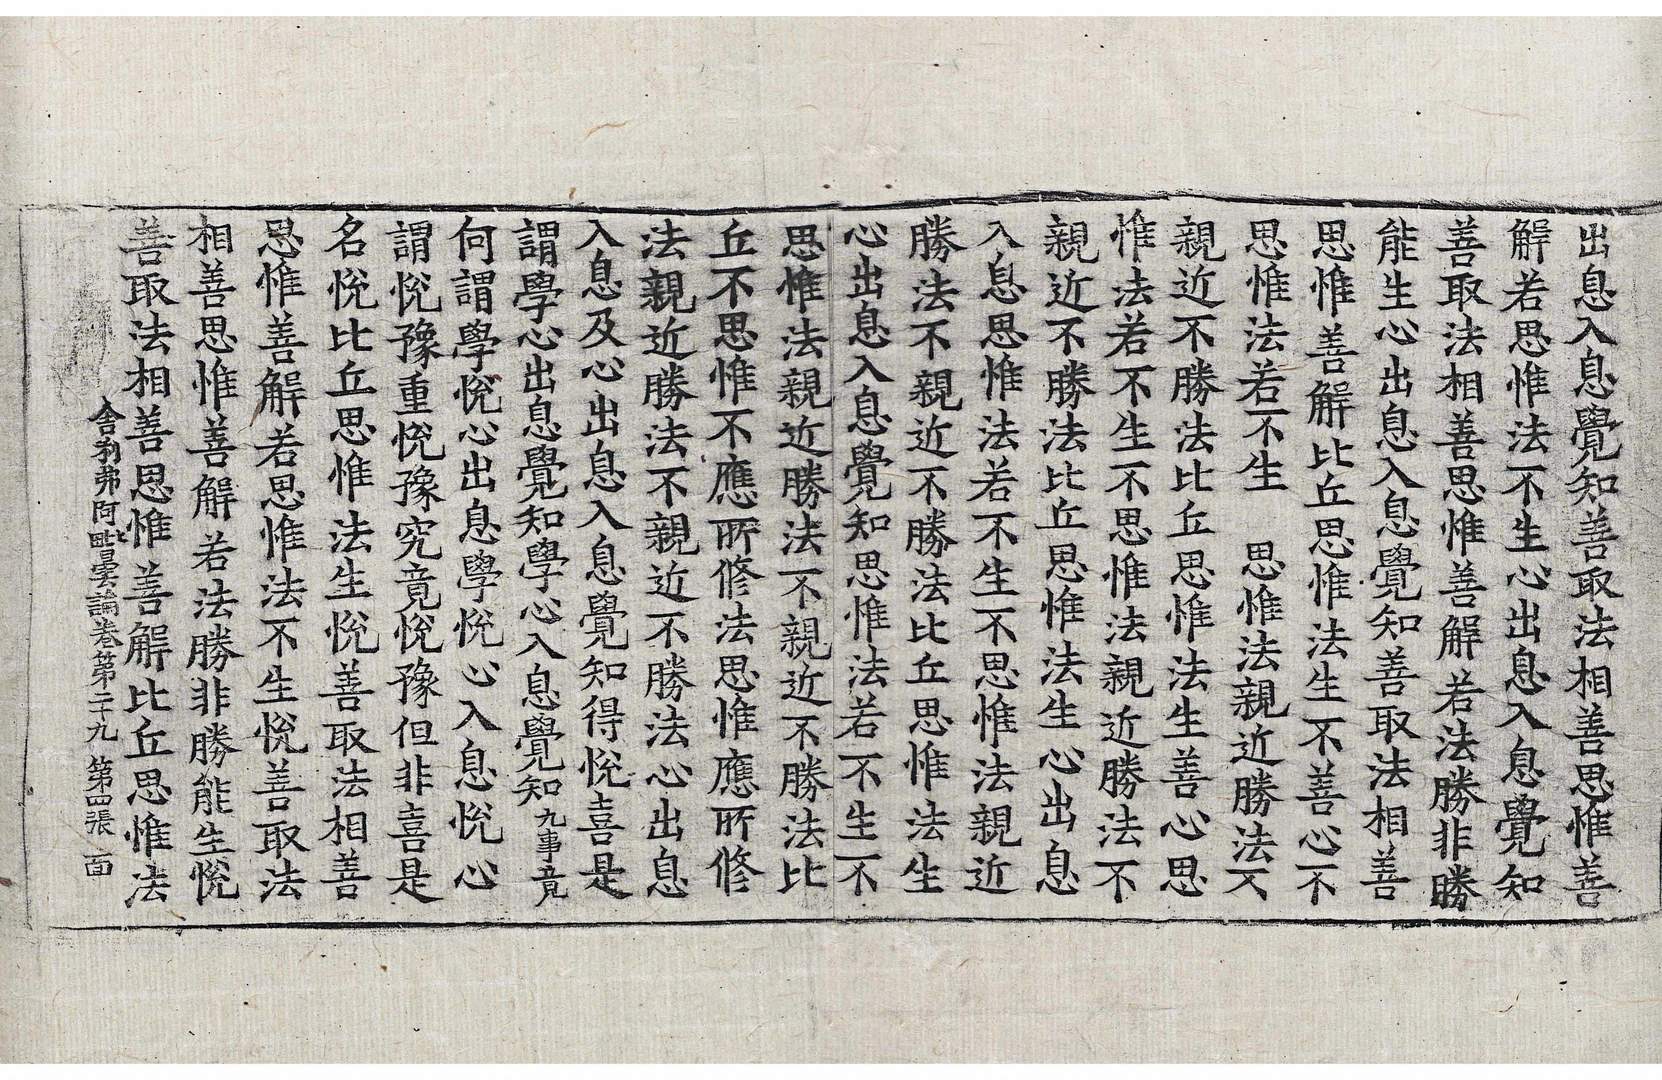 出息入息覺知善取法相善思惟善
解若思惟法不生心出息入息覺知
善取法相善思惟善解若法勝非勝
能生心出息入息覺知善取法相善
思惟善解比丘思惟法生不善心不
思惟法若不生　思惟法親近勝法不
親近不勝法比丘思惟法生善心思
惟法若不生不思惟法親近勝法不
親近不勝法比丘思惟法生心出息
入息思惟法若不生不思惟法親近
勝法不親近不勝法比丘思惟法生
心出息入息覺知思惟法若不生不
思惟法親近勝法不親近不勝法比
丘不思惟不應所修法思惟應所修
法親近勝法不親近不勝法心出息
入息及心出息入息覺知得悅喜是
謂學心出息覺知學心入息覺知九事竟
何謂學悅心出息學悅心入息悅心
謂悅豫重悅豫究竟悅豫但非喜是
名悅比丘思惟法生悅善取法相善
思惟善解若思惟法不生悅善取法
相善思惟善解若法勝非勝能生悅
善取法相善思惟善解比丘思惟法
舍利弗阿毗曇論卷第二十九　第四張　面